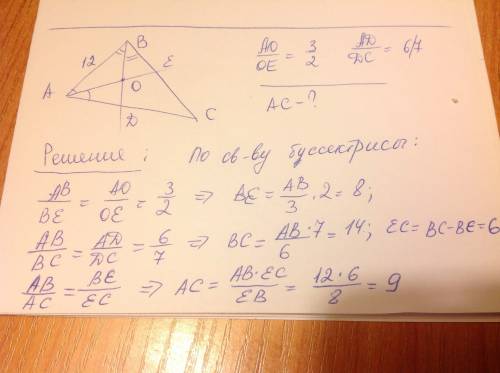 B
12
E
A
O
D
C
AO/OE = 3/2   AD/DC = 6/7
AC - ?
Решение: По св-ву буссектрисы:
AB/BE = AO/OE = 3/2 => BE = AB/3 · 2 = 8;
AB/BC = AD/DC = 6/7 => BC = AB·7/6 = 14; EC = BC-BE = 6
AB/AC = BE/EC => AC = AB·EC/EB = 12·6/8 = 9